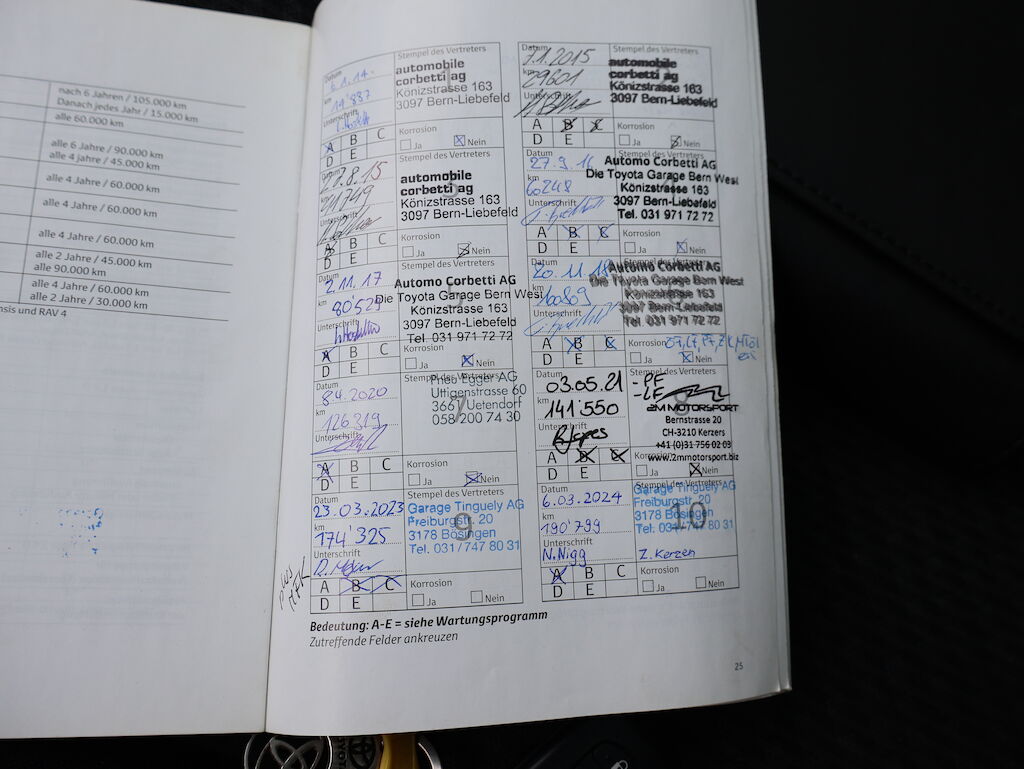 nach 6 Jahren / 105.000 km
Danach jedes Jahr / 15.000 km
alle 60.000 km
alle 6 Jahre / 90.000 km
alle 4 Jahre / 45.000 km
alle 4 Jahre / 60.000 km
alle 4 Jahre / 60.000 km
alle 4 Jahre / 60.000 km
alle 2 Jahre / 45.000 km
alle 90.000 km
alle 4 Jahre / 60.000 km
alle 2 Jahre / 30.000 km
nsis und RAV 4
Datum
6.1.14.
km
14'887
Unterschrift
Stempel des Vertreters
automobile
corbetti ag
Könizstrasse 163
3097 Bern-Liebefeld
A B C
D E
Korrosion
Ja Nein
Datum
7.1.2015
km
29601
Unterschrift
Stempel des Vertreters
automobile
corbetti ag
Könizstrasse 163
3097 Bern-Liebefeld
A B C
D E
Korrosion
Ja Nein
Datum
27.8.15
km
41749
Unterschrift
Stempel des Vertreters
automobile
corbetti ag
Könizstrasse 163
3097 Bern-Liebefeld
A B C
D E
Korrosion
Ja Nein
Datum
27.9.16
km
60248
Unterschrift
Automo Corbetti AG
Die Toyota Garage Bern West
Könizstrasse 163
3097 Bern-Liebefeld
Tel. 031 971 72 72
A B C
D E
Korrosion
Ja Nein
Datum
2.11.17
km
80'529
Unterschrift
Stempel des Vertreters
Automo Corbetti AG
Die Toyota Garage Bern West
Könizstrasse 163
3097 Bern-Liebefeld
Tel. 031 971 72 72
A B C
D E
Korrosion
Ja Nein
Datum
20.11.18
km
100809
Unterschrift
Stempel des Vertreters
Automo Corbetti AG
Die Toyota Garage Bern West
Könizstrasse 163
3097 Bern-Liebefeld
Tel. 031 971 72 72
A B C
D E
Korrosion
Ja Nein
Datum
8.4.2020
km
126319
Unterschrift
Stempel des Vertreters
7
Theo Egger AG
Uttigenstrasse 60
3661 Uetendorf
058 200 74 30
A B C
D E
Korrosion
Ja Nein
Datum
03.05.21
km
141'550
Unterschrift
Stempel des Vertreters
8
2M MOTORSPORT
Bernstrasse 20
CH-3210 Kerzers
+41 (0)31 756 02 03
www.2mmotorsport.biz
A B C
D E
Korrosion
Ja Nein
Datum
23.03.2023
km
174'325
Unterschrift
Stempel des Vertreters
9
Garage Tinguely AG
Freiburgstr. 20
3178 Bösingen
Tel. 031/747 80 31
A B C
D E
Korrosion
Ja Nein
Datum
6.03.2024
km
190'799
Unterschrift
N.Nigg
Stempel des Vertreters
10
Garage Tinguely AG
Freiburgstr. 20
3178 Bösingen
Tel. 031/747 80 31
Z.Kerzen
A B C
D E
Korrosion
Ja Nein
Bedeutung: A-E = siehe Wartungsprogramm
Zutreffende Felder ankreuzen
25